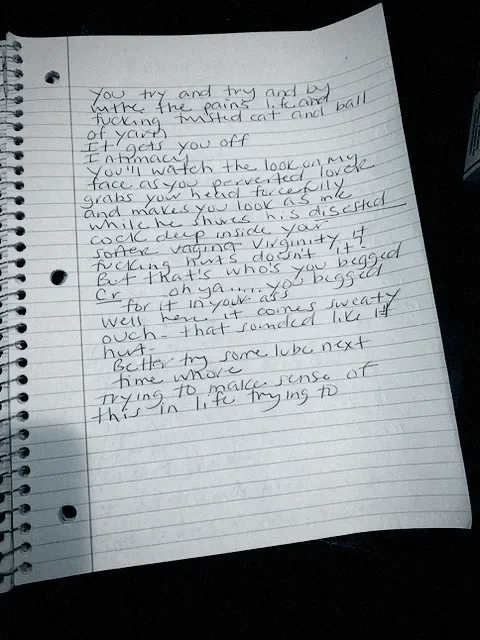 You try and try and by
the the pains life and
fucking twisted cat and ball
of yarn
It gets you off
Intimacy
You'll watch the look on my
face as you perverted lover
grabs your head forcefully
and makes you look as me
while he shoves his disested
cock deep inside your
softer vagina virginity it
fucking hurts doesn't it?
But that's who's you begged
Cr oh ya..... you begged
for it in your ass
Well here it comes sweaty
ouch - that sounded like it
hurt.
Better try some lube next
time whore
trying to make sense of
this in life trying to